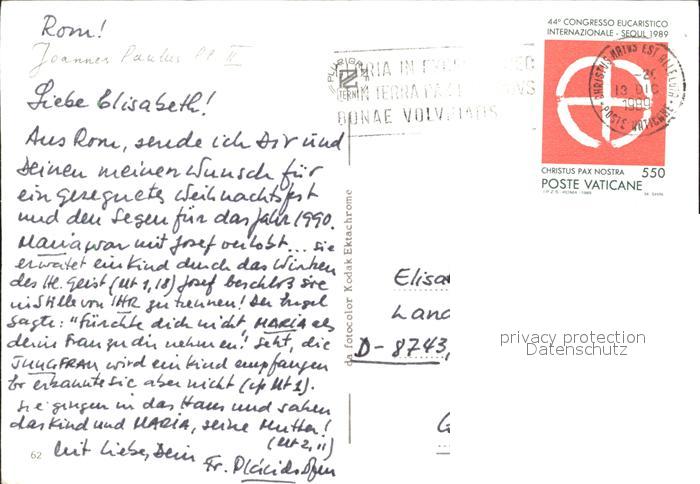 Rom!
Joannes Paulus PP. II
Liebe Elisabeth!
Aus Rom, sende ich Dir und
Deinen meinen Wunsch für
ein gesegnetes Weihnachtsfest
und den Segen für das Jahr 1990.
MARIA war mit Josef verlobt... sie
erwartet ein Kind durch das Wirken
des Hl. Geist (Mt 1,18) Josef beschloß sie
in Stille von IHR zu trennen! Der Engel
sagte: "Fürchte dich nicht, MARIA als
deine Frau zu dir nehmen! Seht, die
JUNGFRAU wird ein Kind empfangen
Er erkannte sie aber nicht (cp Mt 1).
Sie gingen in das Haus und sahen
das Kind und MARIA, seine Mutter!
(Mt 2,11)
Mit Liebe, Dein
Fr.
62
da fotocolor Kodak Ektachrome
GLORIA IN
IN TERRA PAX
BONAE VOLUNTATIS
44° CONGRESSO EUCARISTICO
INTERNAZIONALE - SEOUL 1989
13 DIC
1989
POSTE VATICANE
CHRISTUS PAX NOSTRA
550
POSTE VATICANE
I.P.Z.S. - ROMA - 1989
Elisa
Land
D-8743,
G
privacy protection
Datenschutz